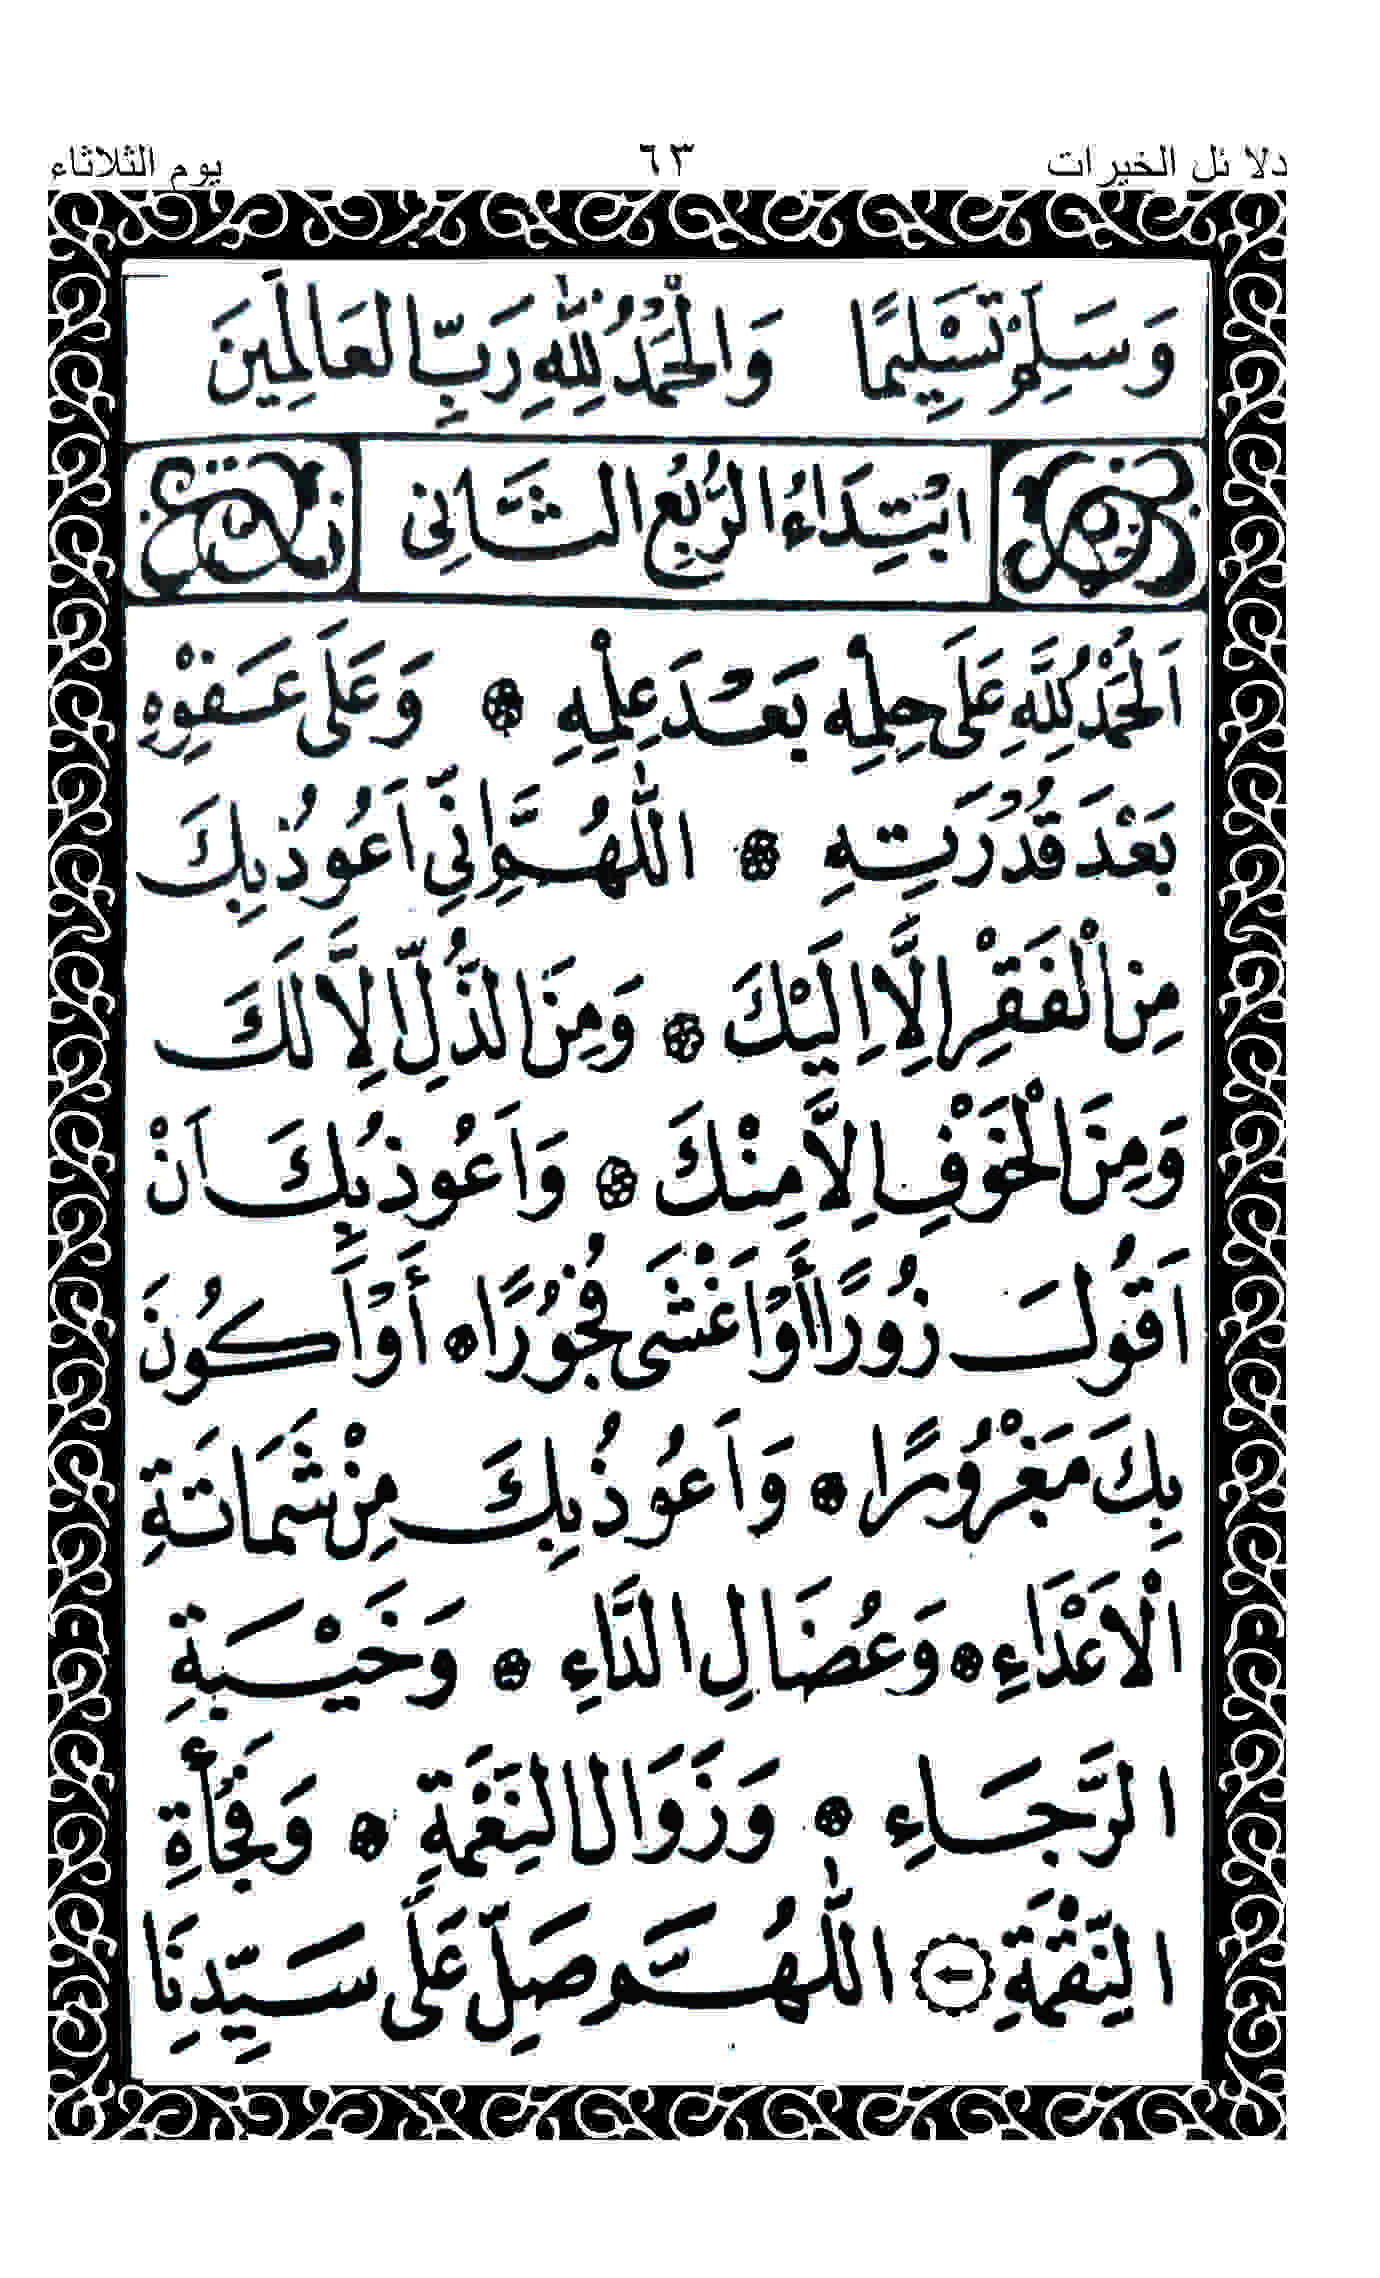 دلا ئل الخيرات ٦٣ يوم الثلاثاء
وَسَلِّمْ تَسْلِيمًا وَالْحَمْدُ لِلّٰهِ رَبِّ الْعَالَمِينَ
ابْتِدَاءُ الرُّبُعِ الثَّانِى
اَلْحَمْدُ لِلَّهِ عَلَى حِلْمِهِ بَعْدَ عِلْمِهِ ۞ وَعَلَى عَفْوِهِ
بَعْدَ قُدْرَتِهِ ۞ اللّٰهُمَّ اِنِّى اَعُوذُ بِكَ
مِنَ الْفَقْرِ اِلَّا اِلَيْكَ ۞ وَمِنَ الذُّلِّ اِلَّا لَكَ
وَمِنَ الْخَوْفِ اِلَّا مِنْكَ ۞ وَاَعُوذُ بِكَ اَنْ
اَقُولَ زُورًا أَوْ اَغْشَى فُجُورًا ۞ أَوْ اَكُونَ
بِكَ مَغْرُورًا ۞ وَاَعُوذُ بِكَ مِنْ شَمَاتَةِ
الْاَعْدَاءِ ۞ وَعُضَالِ الدَّاءِ ۞ وَخَيْبَةِ
الرَّجَاءِ ۞ وَزَوَالِ النِّعْمَةِ ۞ وَفُجَأَةِ
النِّقْمَةِ اللّٰهُمَّ صَلِّ عَلَى سَيِّدِنَا